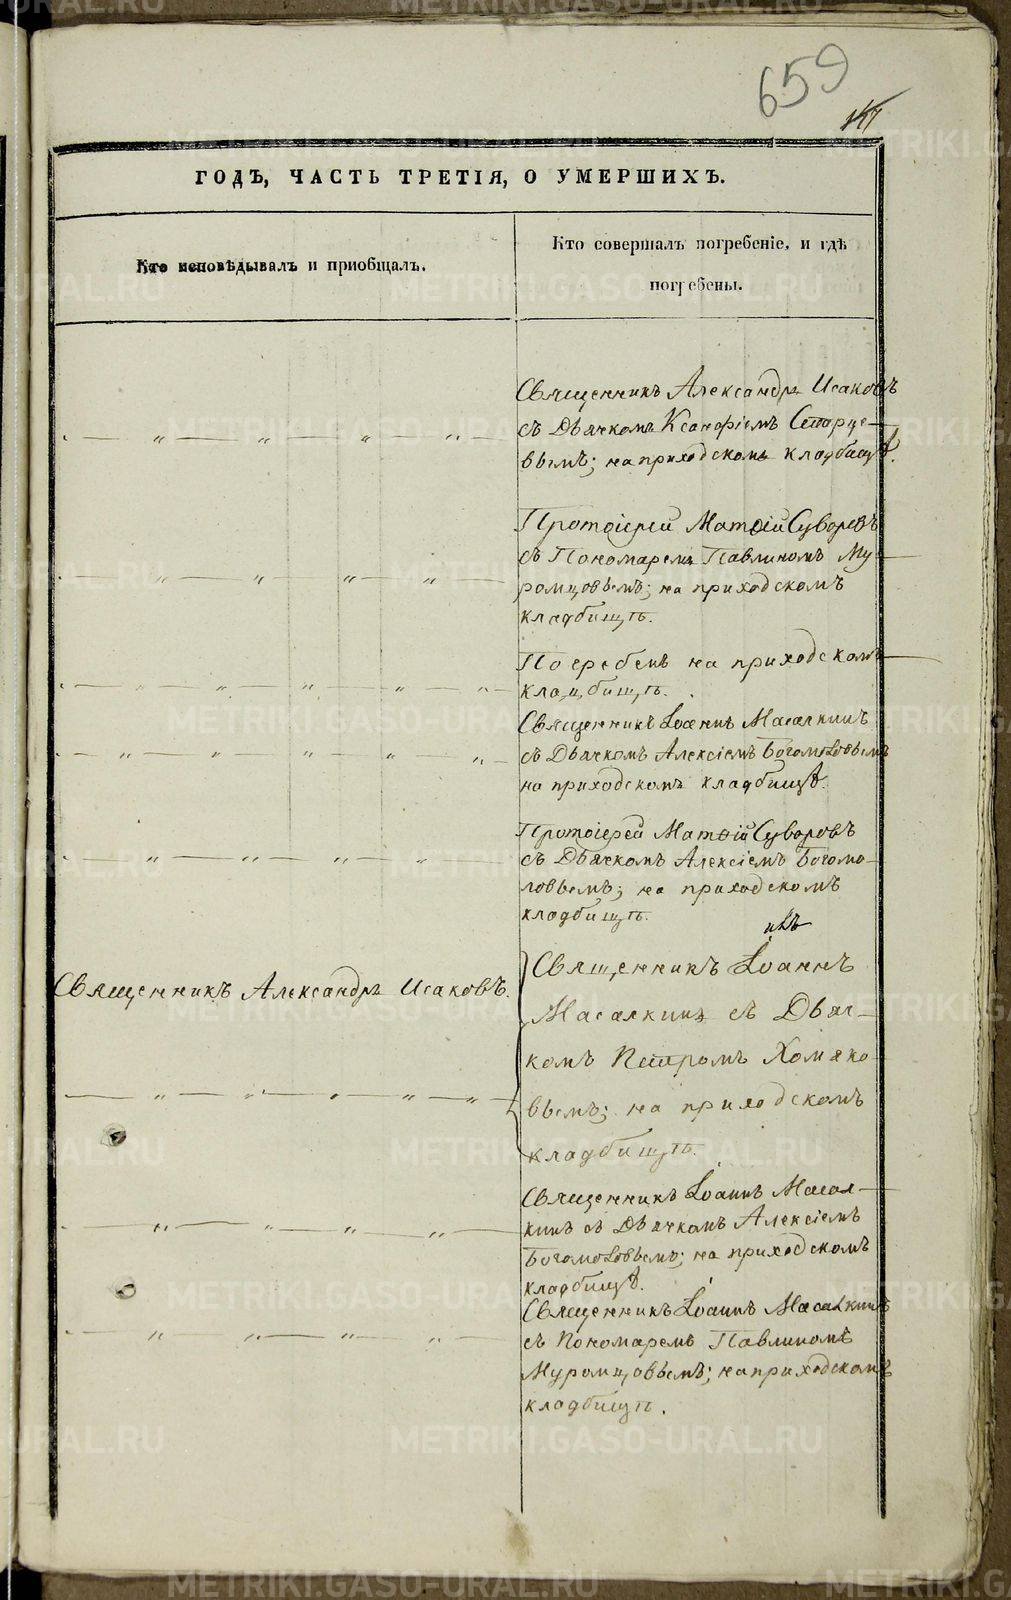 659
ГОДЪ, ЧАСТЬ ТРЕТІЯ, О УМЕРШИХЪ.
Кто исповѣдывалъ и приобщалъ.
Кто совершалъ погребеніе, и гдѣ
погребены.
Священникъ Александръ Исаковъ
съ Дьячкомъ Ксанфіемъ Старце-
вымъ; на приходскомъ кладбищѣ.
Протоіерей Матѳій Суворовъ
съ Пономаремъ Павлиномъ Му-
ромцовымъ; на приходскомъ
кладбищѣ.
Погребенъ на приходскомъ
кладбищѣ.
Священникъ Іоаннъ Масалкинъ
съ Дьячкомъ Алексіемъ Богомоловымъ
на приходскомъ кладбищѣ.
Протоіерей Матѳій Суворовъ
съ Дьячкомъ Алексіемъ Богомо-
ловымъ; на приходскомъ
кладбищѣ.
ихъ
Священникъ Александръ Исаковъ.
Священникъ Іоаннъ
Масалкинъ съ Дьяч-
комъ Петромъ Хомяко-
вымъ; на приходскомъ
кладбищѣ.
Священникъ Іоаннъ Масал-
кинъ съ Дьячкомъ Алексіемъ
Богомоловымъ; на приходскомъ
кладбищѣ.
Священникъ Іоаннъ Масалкинъ
съ Пономаремъ Павлиномъ
Муромцовымъ; на приходскомъ
кладбищѣ.
METRIKI.GASO-URAL.RU